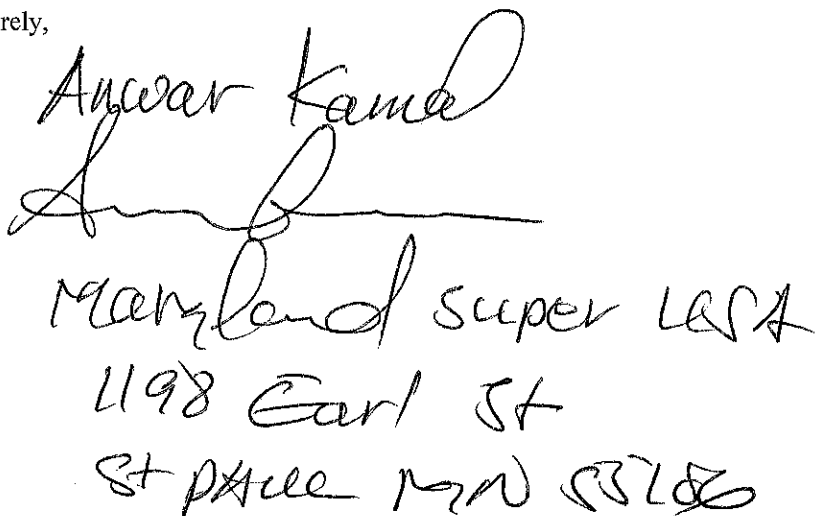 rely,
Anwar Kamal
Maryland super USA
1198 Earl St
St PAUL MN 55106